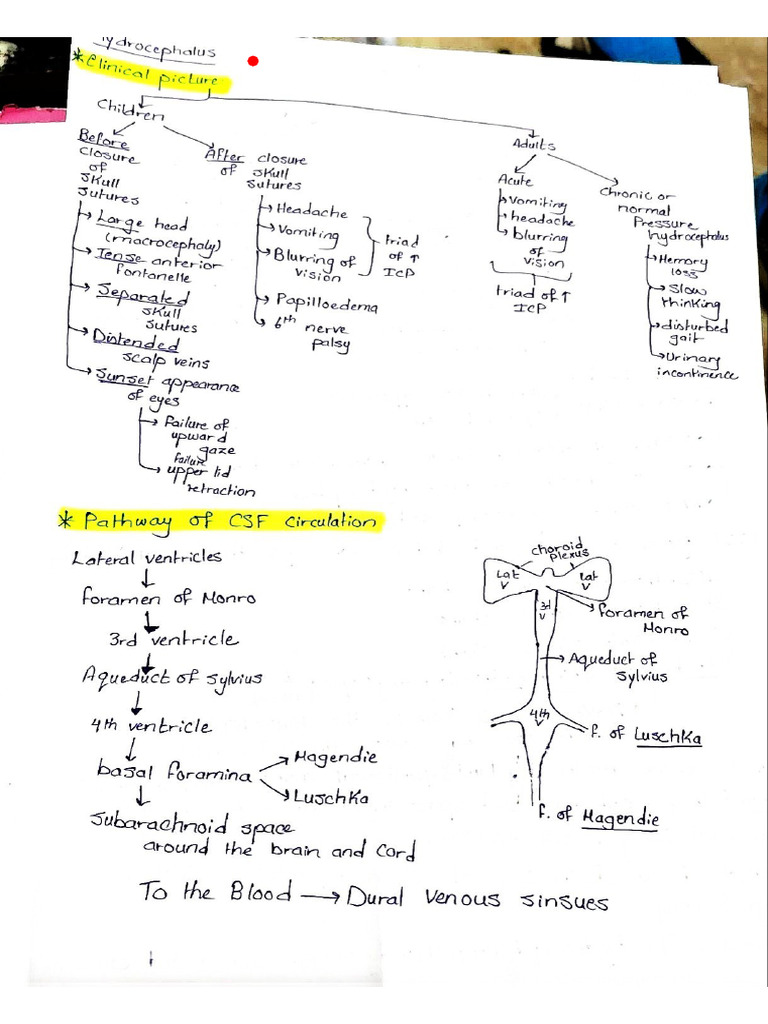 Hydrocephalus
* Clinical picture
Children
Before
closure
of
skull
sutures
→ Large head
(macrocephaly)
→ Tense anterior
fontanelle
→ Separated
skull
sutures
→ Distended
scalp veins
→ Sunset appearance
of eyes
→ Failure of
upward
gaze
failure
→ upper lid
retraction
After closure
of skull
sutures
→ Headache
→ Vomiting
→ Blurring of
vision
triad
of ↑
ICP
→ Papilloedema
→ 6th nerve
palsy
Adults
Acute
→ Vomiting
→ headache
→ blurring
of
vision
triad of ↑
ICP
Chronic or
normal
Pressure
hydrocephalus
→ Memory
loss
→ Slow
thinking
→ disturbed
gait
→ Urinary
incontinence
* Pathway of CSF circulation
Lateral ventricles
↓
foramen of Monro
↓
3rd ventricle
↓
Aqueduct of Sylvius
↓
4th ventricle
↓
basal foramina → Magendie
→ Luschka
↓
Subarachnoid space
around the brain and Cord
To the Blood → Dural venous sinsues
choroid
plexus
Lat
V
lat
V
3d
V
→ foramen of
Monro
→ Aqueduct of
Sylvius
4th
V
f. of Luschka
f. of Magendie